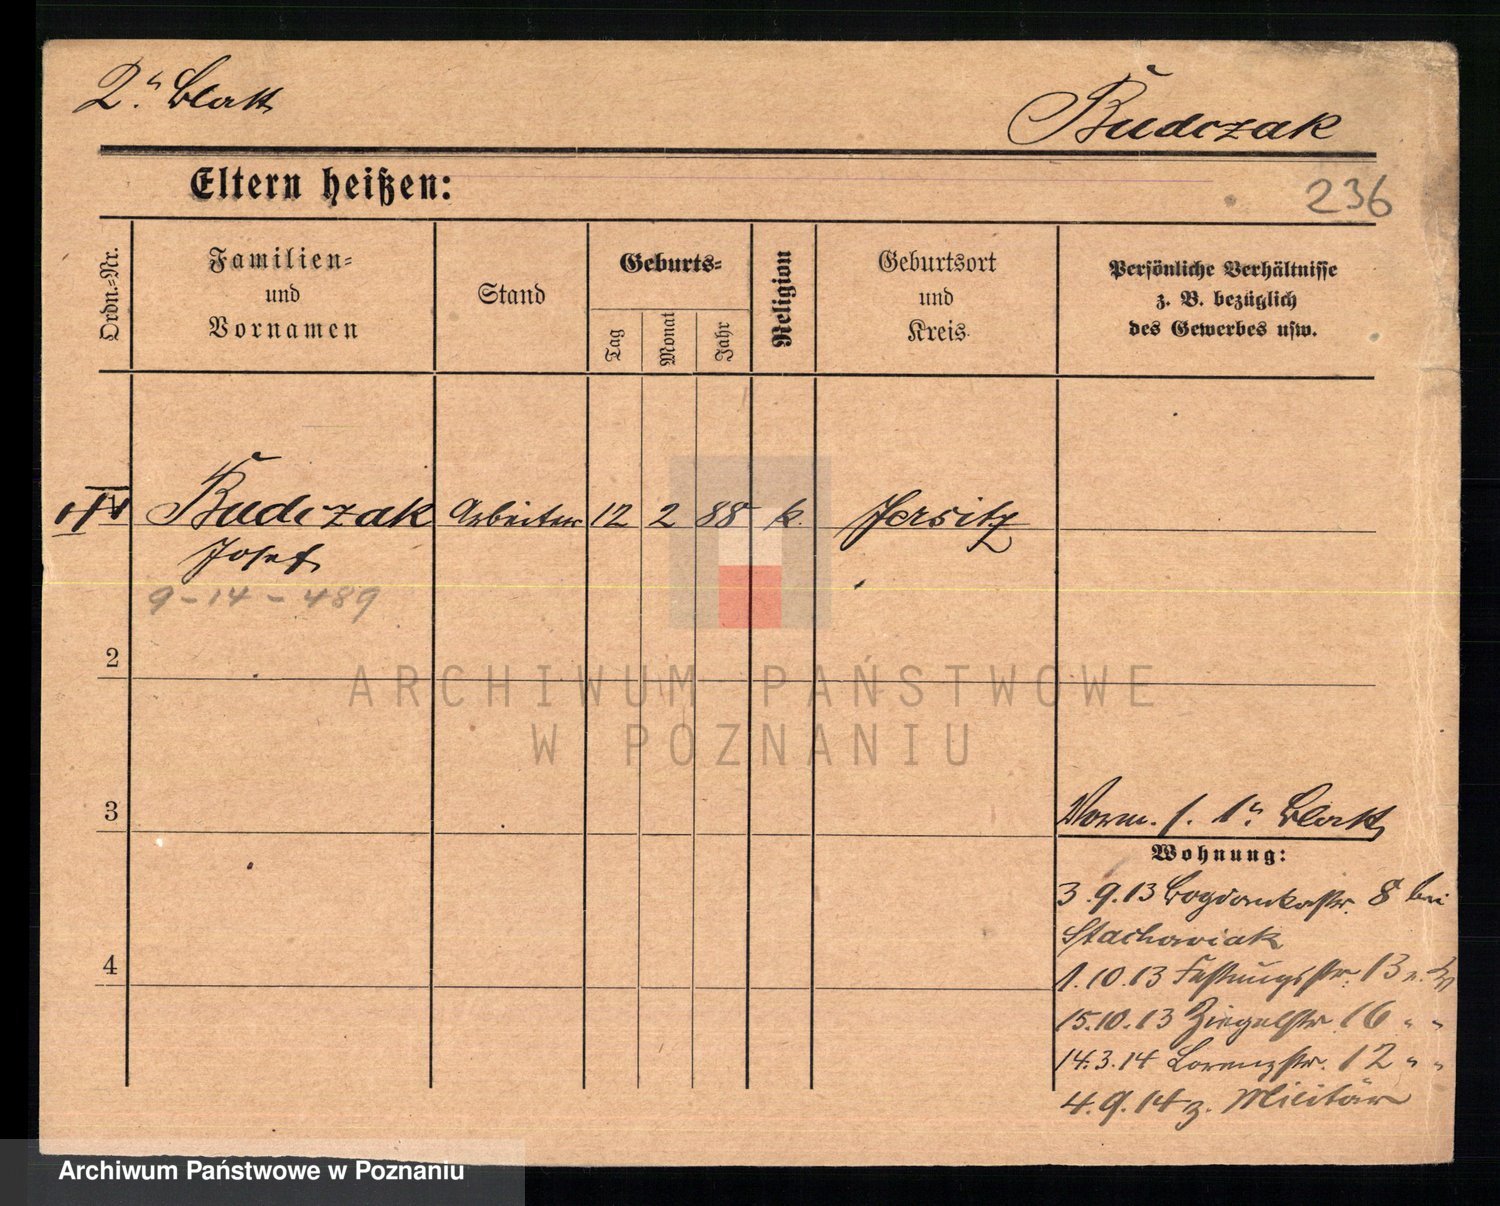 2n. Blatt
Budczak
Eltern heißen:
236
Ordn.=Nr.
Familien=
und
Vornamen
Stand
Geburts=
Tag
Monat
Jahr
Religion
Geburtsort
und
Kreis
Persönliche Verhältnisse
z. B. bezüglich
des Gewerbes usw.
Budczak Arbeiter 12 2 88 k. Jersitz
Josef
9-14-489
2
ARCHIWUM PAŃSTWOWE
W POZNANIU
3
Vorm. s. 1n. Blatt
Wohnung:
3.9.13 Bogdankastr. 8 bei
Stachowiak
4
1.10.13 Festungsstr. 13
15.10.13 Ziegelstr. 16 " "
14.3.14 Lorenzstr. 12 " "
4.9.14 z. Militär
Archiwum Państwowe w Poznaniu